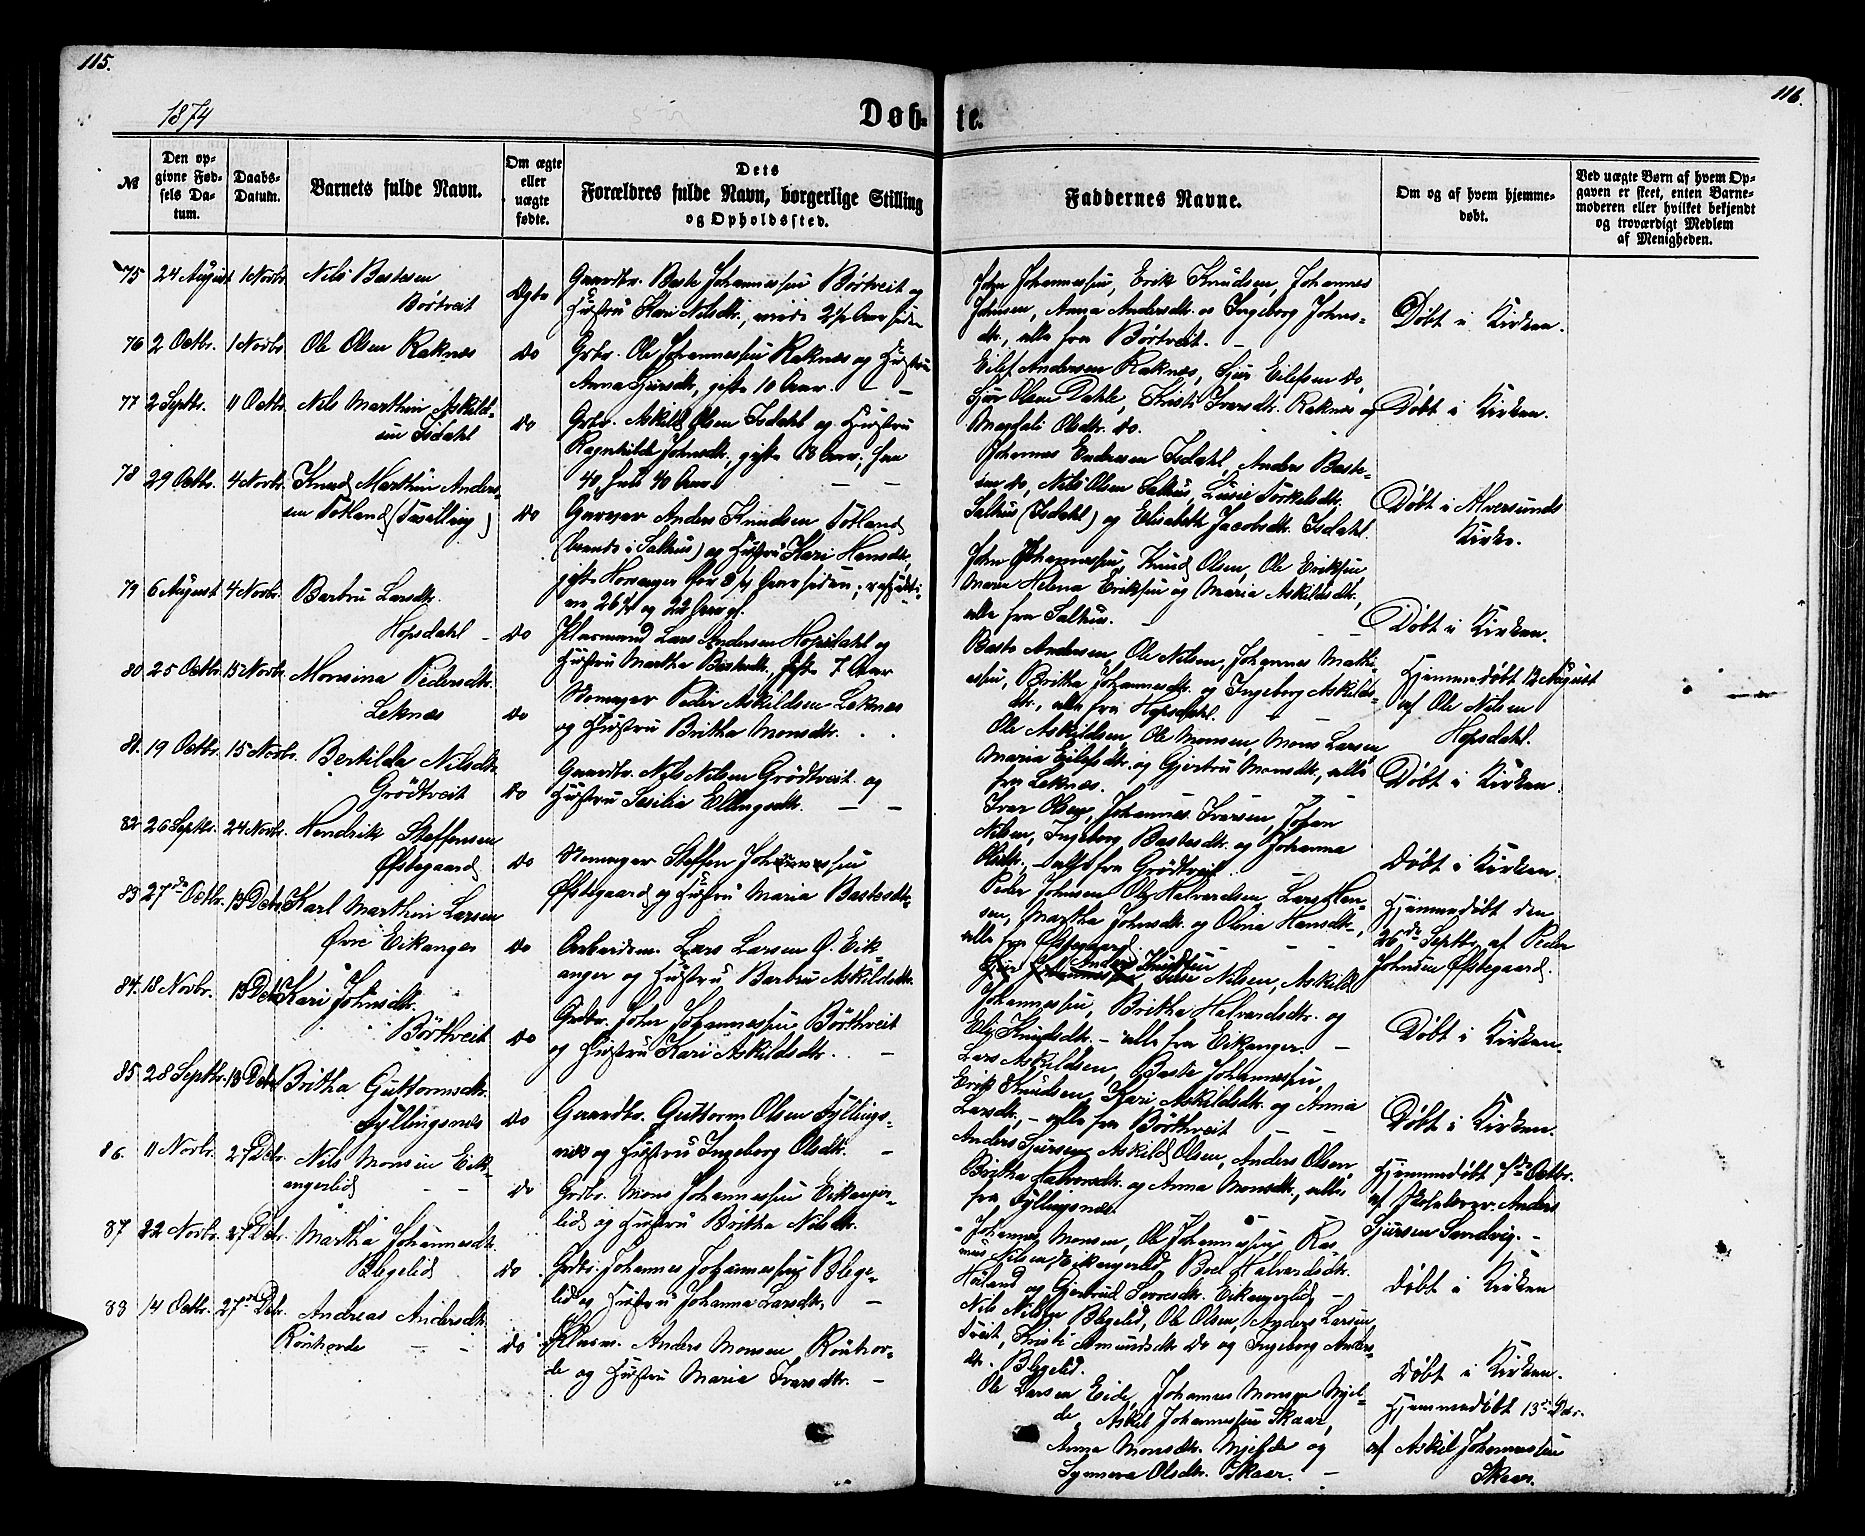 115.
116.
1874
Døb-
te.
№
Den op-
givne Fød-
sels Da-
tum.
Daabs-
Datum.
Barnets fulde Navn.
Om ægte
eller
uægte
fødte.
Dets
Forældres fulde Navn, borgerlige Stilling
og Opholdssted.
Faddernes Navne.
Om og af hvem hjemme-
døbt.
Ved uægte Børn af hvem Op-
gaven er skeet, enten Barne-
moderen eller hvilket bekjendt
og troværdigt Medlem
af Menigheden.
75 24 August 1 Novbr. Nils Bastesen
Børtveit
Ægte
Gaardbr. Baste Johannessen Børtveit og
Hustru Kari Nilsdtr.,
John Johannessen, Erik Knudsen, Johannes
Johnsen, Anna Andersdtr. og Ingeborg Johns-
dtr., alle fra Børtveit. –
Døbt i Kirken.
76 2 Octbr. 1 Novbr. Ole Olsen Raknes
do
Grbr. Ole Johannessen Raknes og Hustru
Anna Sjursdtr., gifte 10 Aar. –
Eilef Andersen Raknes, Sjur Eilefsen do,
Sjur Olsen Dahle, Kristi Iversdtr. Raknes og
Magfali Olsdtr. do.
Døbt i Kirken.
77 2 Septbr. 11 Octbr. Nils Marthin Askild-
sen Isdahl
do
Grbr. Askild Olsen Isdahl og Hustru
Ragnhilde Johnsdtr., gifte 13 Aar, han
40, hun 40 Aar
Johannes Endresen Isdahl, Anders Baste-
sen do, Nils Olsen Salhus, Lusie Torkelsdtr.
Salhus (Isdahl) og Elisabeth Jacobsdtr. Isdahl.
Døbt i Alversunds
Kirke.
78 29 Octbr. 4 Novbr. Knud Marthin Anders-
sen Totland
do
Garver Anders Knudsen Totland
(boende i Salhus) og Hustru Kari Hansdtr.,
John Johannessen, Knud Olsen, Ole Eriksen,
Maren Helena Eriksen og Maria Askildsdtr.,
alle fra Salhus. –
Døbt i Kirken.
79 6 August 4 Novbr. Barbru Larsdtr.
Hopsdahl –
do
Larsmand Lars Andersen Hopsdahl og
Hustru Martha Bastesdtr., gifte 7 Aar
Baste Andersen, Ole Nilsen, Johannes Mathi-
assen, Britha Johannesdtr. og Ingeborg Askilds-
dtr., alle fra Hopsdahl.
Hjemmedøbt 12 August
af Ole Nilsen
Hopsdahl.
80 25 Octbr. 15 Novbr. Monsina Pedersdtr.
Leknes
do
Peder Askildsen Leknes
og Hustru Britha Monsdtr.
Ole Askildsen, Ole Monsen, Mons Larsen,
Maria Eilefsdtr. og Gjertru Monsdtr., alle
fra Leknes.
Døbt i Kirken.
81. 19 Octbr. 15 Novbr. Bertilda Nilsdtr.
Grødtveit
do
Gaardbr. Nils Nilsen Grødtveit og
Hustru Sesilia Ellingsdtr. – –
Iver Olsen, Johannes Iversen, Johan
Nilsen, Ingeborg Bastesdtr. og Johanna
Olsdtr. – alle fra Grødtveit.
Døbt i Kirken.
82 26 Septbr. 24 Novbr. Hendrik Steffensen
Øfstegaard
do
Steffen Johannessen
Øfstegaard og Hustru Maria Bastesdtr.
Peder Johnsen, Ole Halvardsen, Lars Han-
sen, Martha Johnsdtr. og Olena Hansdtr.,
alle fra Øfstegaard.
Hjemmedøbt den
26de Septbr. af Peder
Johnsen Øfstegaard.
83 27de Octbr. 13 Debr. Karl Marthin Larsen
Øvre Eikanger
do
Arbeidsm. Lars Larsen Ø. Eik-
anger og Hustru Barbru Askildsdtr.
Anders Knudsen
Nilsen, Askild
Johannessen, Britha Halvardsdtr. og
Eli Knudsdtr. – alle fra Eikanger. –
Døbt i Kirken.
84. 18 Novbr. 13 Debr. Kari Johnsdtr.
Børtveit
do
Grbr. John Johannessen Børthveit
og Hustru Kari Askildsdtr. –
Lars Askildsen, Baste Johannessen,
Erik Knudsen, Kari Askildsdtr. og Anna
Larsdtr. – alle fra Børthveit
Døbt i Kirken.
85. 28 Septbr. 13 Debr. Britha Guttormsdtr.
Fyllingsnes
do
Gaardbr. Guttorm Olsen Fyllings-
nes og Hustru Ingeborg Olsdtr. –
Anders Sjursen, Askild Olsen, Anders Olsen,
Britha Halvorsdtr. og Anna Monsdtr., alle
fra Fyllingsnes.
Hjemmedøbt 7de Octbr.
af Skolelærer Anders
Sjursen Sandvig. –
86. 11 Novbr. 27 Debr. Nils Monsen Eik-
angerlid –
do
Grbr. Mons Johannessen Eikanger-
lid og Hustru Britha Nilsdtr.
– Johannes Monsen, Ole Johannessen, Ras-
mus Nilsen Eikangerlid, Boel Halvardsdtr.
Høiland og Gjertrud Sevresdtr. Eikangerlid –
Døbt i Kirken
87 22 Novbr. 27 Debr. Martha Johannesdtr.
Blegelid
do
Grbr. Johannes Johannessen Blege-
lid og Hustru Johanna Larsdtr. –
Nils Nilsen Blegelid, Ole Olsen, Anders Larsen
Tveit, Kristi Amundsdtr. do og Ingeborg Anders-
dtr. Blegelid.
Døbt i Kirken.
88 14 Octbr. 27de Debr. Andreas Andersdtr.
Rønhovde – –
do
Anders Monsen Rønhov-
de og Hustru Maria Iversdtr. –
Ole Larsen Eide, Johannes Monsen Mjel-
de, Askel Johannessen Skaar,
Anna Monsdtr. Mjelde og
Synneva Olsdtr. Skaar. –
Hjemmedøbt 13de Dec.
af Askel Johannessen
Skaar.